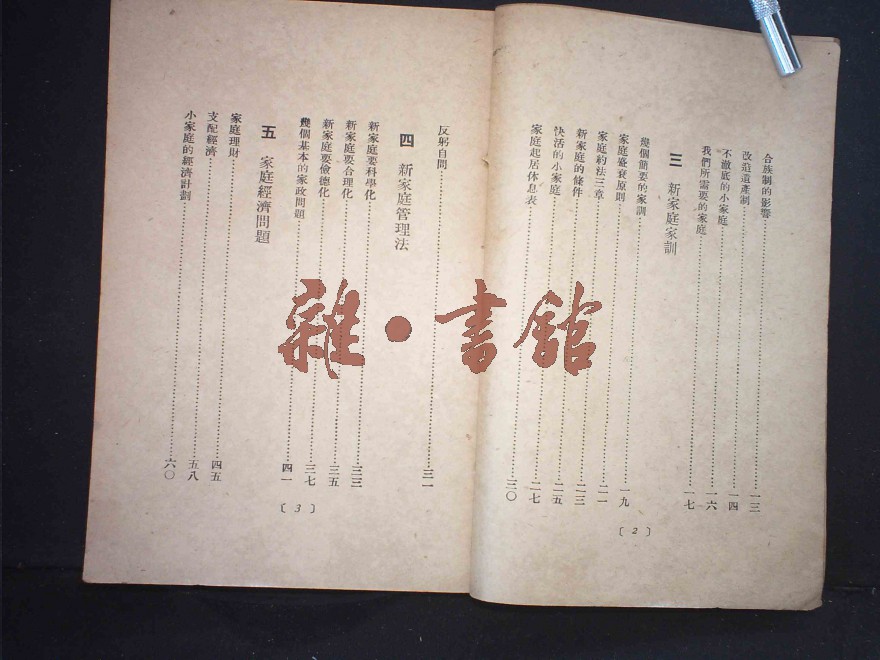 合族制的影響……一三
改造遺產制……一四
不澈底的小家庭……一六
我們所需要的家庭……一七
三 新家庭家訓
幾個簡要的家訓……一九
家庭盛衰原則……二一
家庭約法三章……二三
新家庭的條件……二五
快活的小家庭……二七
家庭起居休息表……三〇
〔2〕
反躬自問……三一
四 新家庭管理法
新家庭要科學化……三三
新家庭要合理化……三五
新家庭要儉德化……三七
幾個基本的家政問題……四一
五 家庭經濟問題
家庭理財……四五
支配經濟……五八
小家庭的經濟計劃……六〇
〔3〕
雜·書館